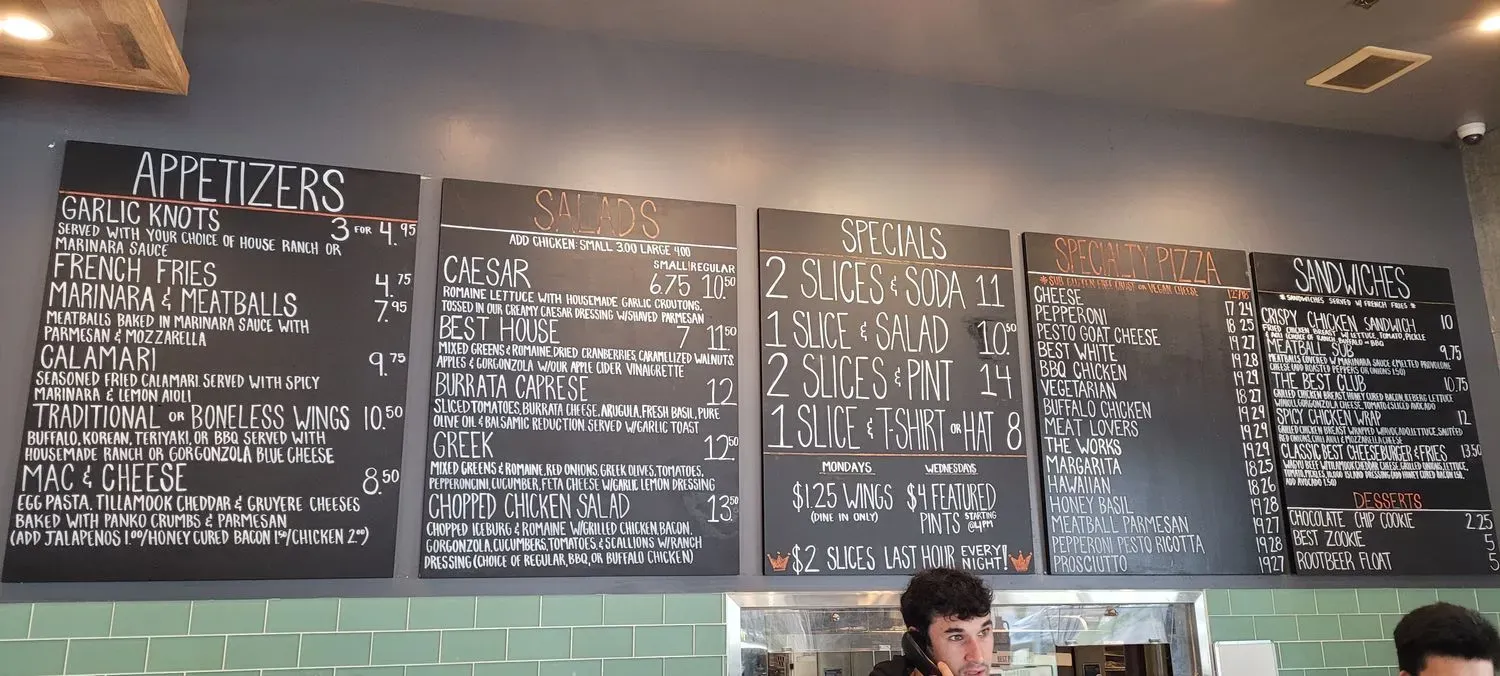 APPETIZERS
GARLIC KNOTS 3 FOR 4.95
SERVED WITH YOUR CHOICE OF HOUSE RANCH OR
MARINARA SAUCE
FRENCH FRIES 4.75
MARINARA & MEATBALLS 7.95
MEATBALLS BAKED IN MARINARA SAUCE WITH
PARMESAN & MOZZARELLA
CALAMARI 9.75
SEASONED FRIED CALAMARI SERVED WITH SPICY
MARINARA & LEMON AIOLI
TRADITIONAL OR BONELESS WINGS 10.50
BUFFALO, KOREAN, TERIYAKI, OR BBQ SERVED WITH
HOUSEMADE RANCH OR GORGONZOLA BLUE CHEESE
MAC & CHEESE 8.50
EGG PASTA, TILLAMOOK CHEDDAR & GRUYERE CHEESES
BAKED WITH PANKO CRUMBS & PARMESAN
(ADD JALAPENOS 1.00/HONEY CURED BACON 1.50/CHICKEN 2.00)
SALADS
ADD CHICKEN: SMALL 3.00 LARGE 4.00
SMALL|REGULAR
CAESAR 6.75 10.50
ROMAINE LETTUCE WITH HOUSEMADE GARLIC CROUTONS
TOSSED IN OUR CREAMY CAESAR DRESSING W/SHAVED PARMESAN
BEST HOUSE 7 11.50
MIXED GREENS & ROMAINE, DRIED CRANBERRIES, CARAMELIZED WALNUTS,
APPLES & GORGONZOLA W/OUR APPLE CIDER VINAIGRETTE
BURRATA CAPRESE 12
SLICED TOMATOES, BURRATA CHEESE, ARUGULA, FRESH BASIL, PURE
OLIVE OIL & BALSAMIC REDUCTION. SERVED W/GARLIC TOAST
GREEK 12.50
MIXED GREENS & ROMAINE, RED ONIONS, GREEK OLIVES, TOMATOES,
PEPPERONCINI, CUCUMBER, FETA CHEESE W/GARLIC LEMON DRESSING
CHOPPED CHICKEN SALAD 13.50
CHOPPED ICEBURG & ROMAINE W/GRILLED CHICKEN, BACON,
GORGONZOLA, CUCUMBERS, TOMATOES, & SCALLIONS W/RANCH
DRESSING (CHOICE OF REGULAR, BBQ, OR BUFFALO CHICKEN)
SPECIALS
2 SLICES & SODA 11
1 SLICE & SALAD 10.50
2 SLICES & PINT 14
1 SLICE & T-SHIRT OR HAT 8
MONDAYS
$1.25 WINGS
(DINE IN ONLY)
WEDNESDAYS
$4 FEATURED
PINTS STARTING @4PM
$2 SLICES LAST HOUR EVERY NIGHT!
SPECIALTY PIZZA
*SUB GLUTEN FREE CRUST OR VEGAN CHEESE
CHEESE 17 24
PEPPERONI 18 25
PESTO GOAT CHEESE 19 27
BEST WHITE 19 28
BBQ CHICKEN 19 29
VEGETARIAN 18 27
BUFFALO CHICKEN 19 29
MEAT LOVERS 19 29
THE WORKS 19 29
MARGARITA 18 25
HAWAIIAN 18 26
HONEY BASIL 19 28
MEATBALL PARMESAN 19 27
PEPPERONI PESTO RICOTTA 19 28
PROSCIUTTO 19 27
SANDWICHES
*SANDWICHES SERVED W/ FRENCH FRIES*
CRISPY CHICKEN SANDWICH 10
FRIED CHICKEN BREAST W/ LETTUCE, TOMATO, PICKLE
& CHOICE OF RANCH, BUFFALO OR BBQ
MEATBALL SUB 9.75
MEATBALLS COVERED W/ MARINARA SAUCE & MELTED PROVOLONE
CHEESE (ADD ROASTED PEPPERS OR ONIONS 1.50)
THE BEST CLUB 10.75
GRILLED CHICKEN BREAST, HONEY CURED BACON, ICEBERG LETTUCE
GORGONZOLA CHEESE, TOMATO & SLICED AVOCADO
SPICY CHICKEN WRAP 12
GRILLED CHICKEN BREAST WRAPPED W/AVOCADO, LETTUCE, SAUTÉED
RED ONIONS, CHILI AIOLI & MOZZARELLA CHEESE
CLASSIC BEST CHEESEBURGER & FRIES 13.50
WAGYU BEEF W/TILLAMOOK CHEDDAR CHEESE, GRILLED ONIONS, LETTUCE,
TOMATO, PICKLES, 1000 ISLAND DRESSING (ADD HONEY CURED BACON 1.50,
ADD AVOCADO 1.50)
DESSERTS
CHOCOLATE CHIP COOKIE 2.25
BEST ZOOKIE 5
ROOTBEER FLOAT 5